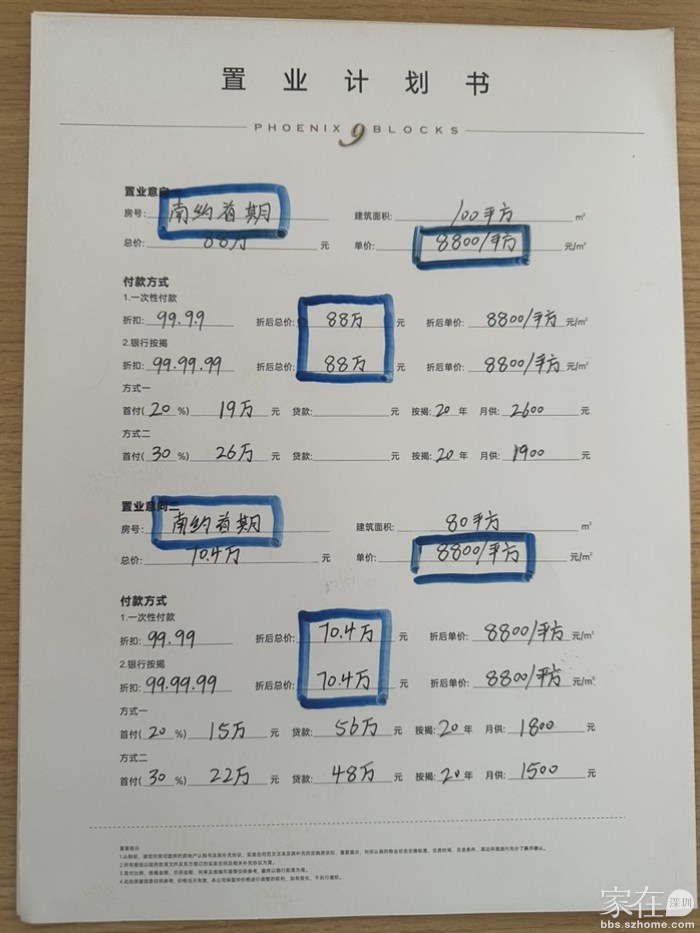 置业计划书
PHOENIX 9 BLOCKS
置业意向一
房号: 南约首期 建筑面积: 100平方 m²
总价: 88万 元 单价: 8800/平方 元/m²
付款方式
1.一次性付款
折扣: 99.99 折后总价: 88万 元 折后单价: 8800/平方 元/m²
2.银行按揭
折扣: 99.99.99 折后总价: 88万 元 折后单价: 8800/平方 元/m²
方式一
首付(20%) 19万 元 贷款: 元 按揭: 20年 月供: 2600 元
方式二
首付(30%) 26万 元 贷款: 元 按揭: 20年 月供: 1900 元
置业意向二
房号: 南约首期 建筑面积: 80平方 m²
总价: 70.4万 元 单价: 8800/平方 元/m²
付款方式
1.一次性付款
折扣: 99.99 折后总价: 70.4万 元 折后单价: 8800/平方 元/m²
2.银行按揭
折扣: 99.99.99 折后总价: 70.4万 元 折后单价: 8800/平方 元/m²
方式一
首付(20%) 15万 元 贷款: 56万 元 按揭: 20年 月供: 1800 元
方式二
首付(30%) 22万 元 贷款: 48万 元 按揭: 20年 月供: 1500 元
重要提示
家在深圳
bbs.szhome.com